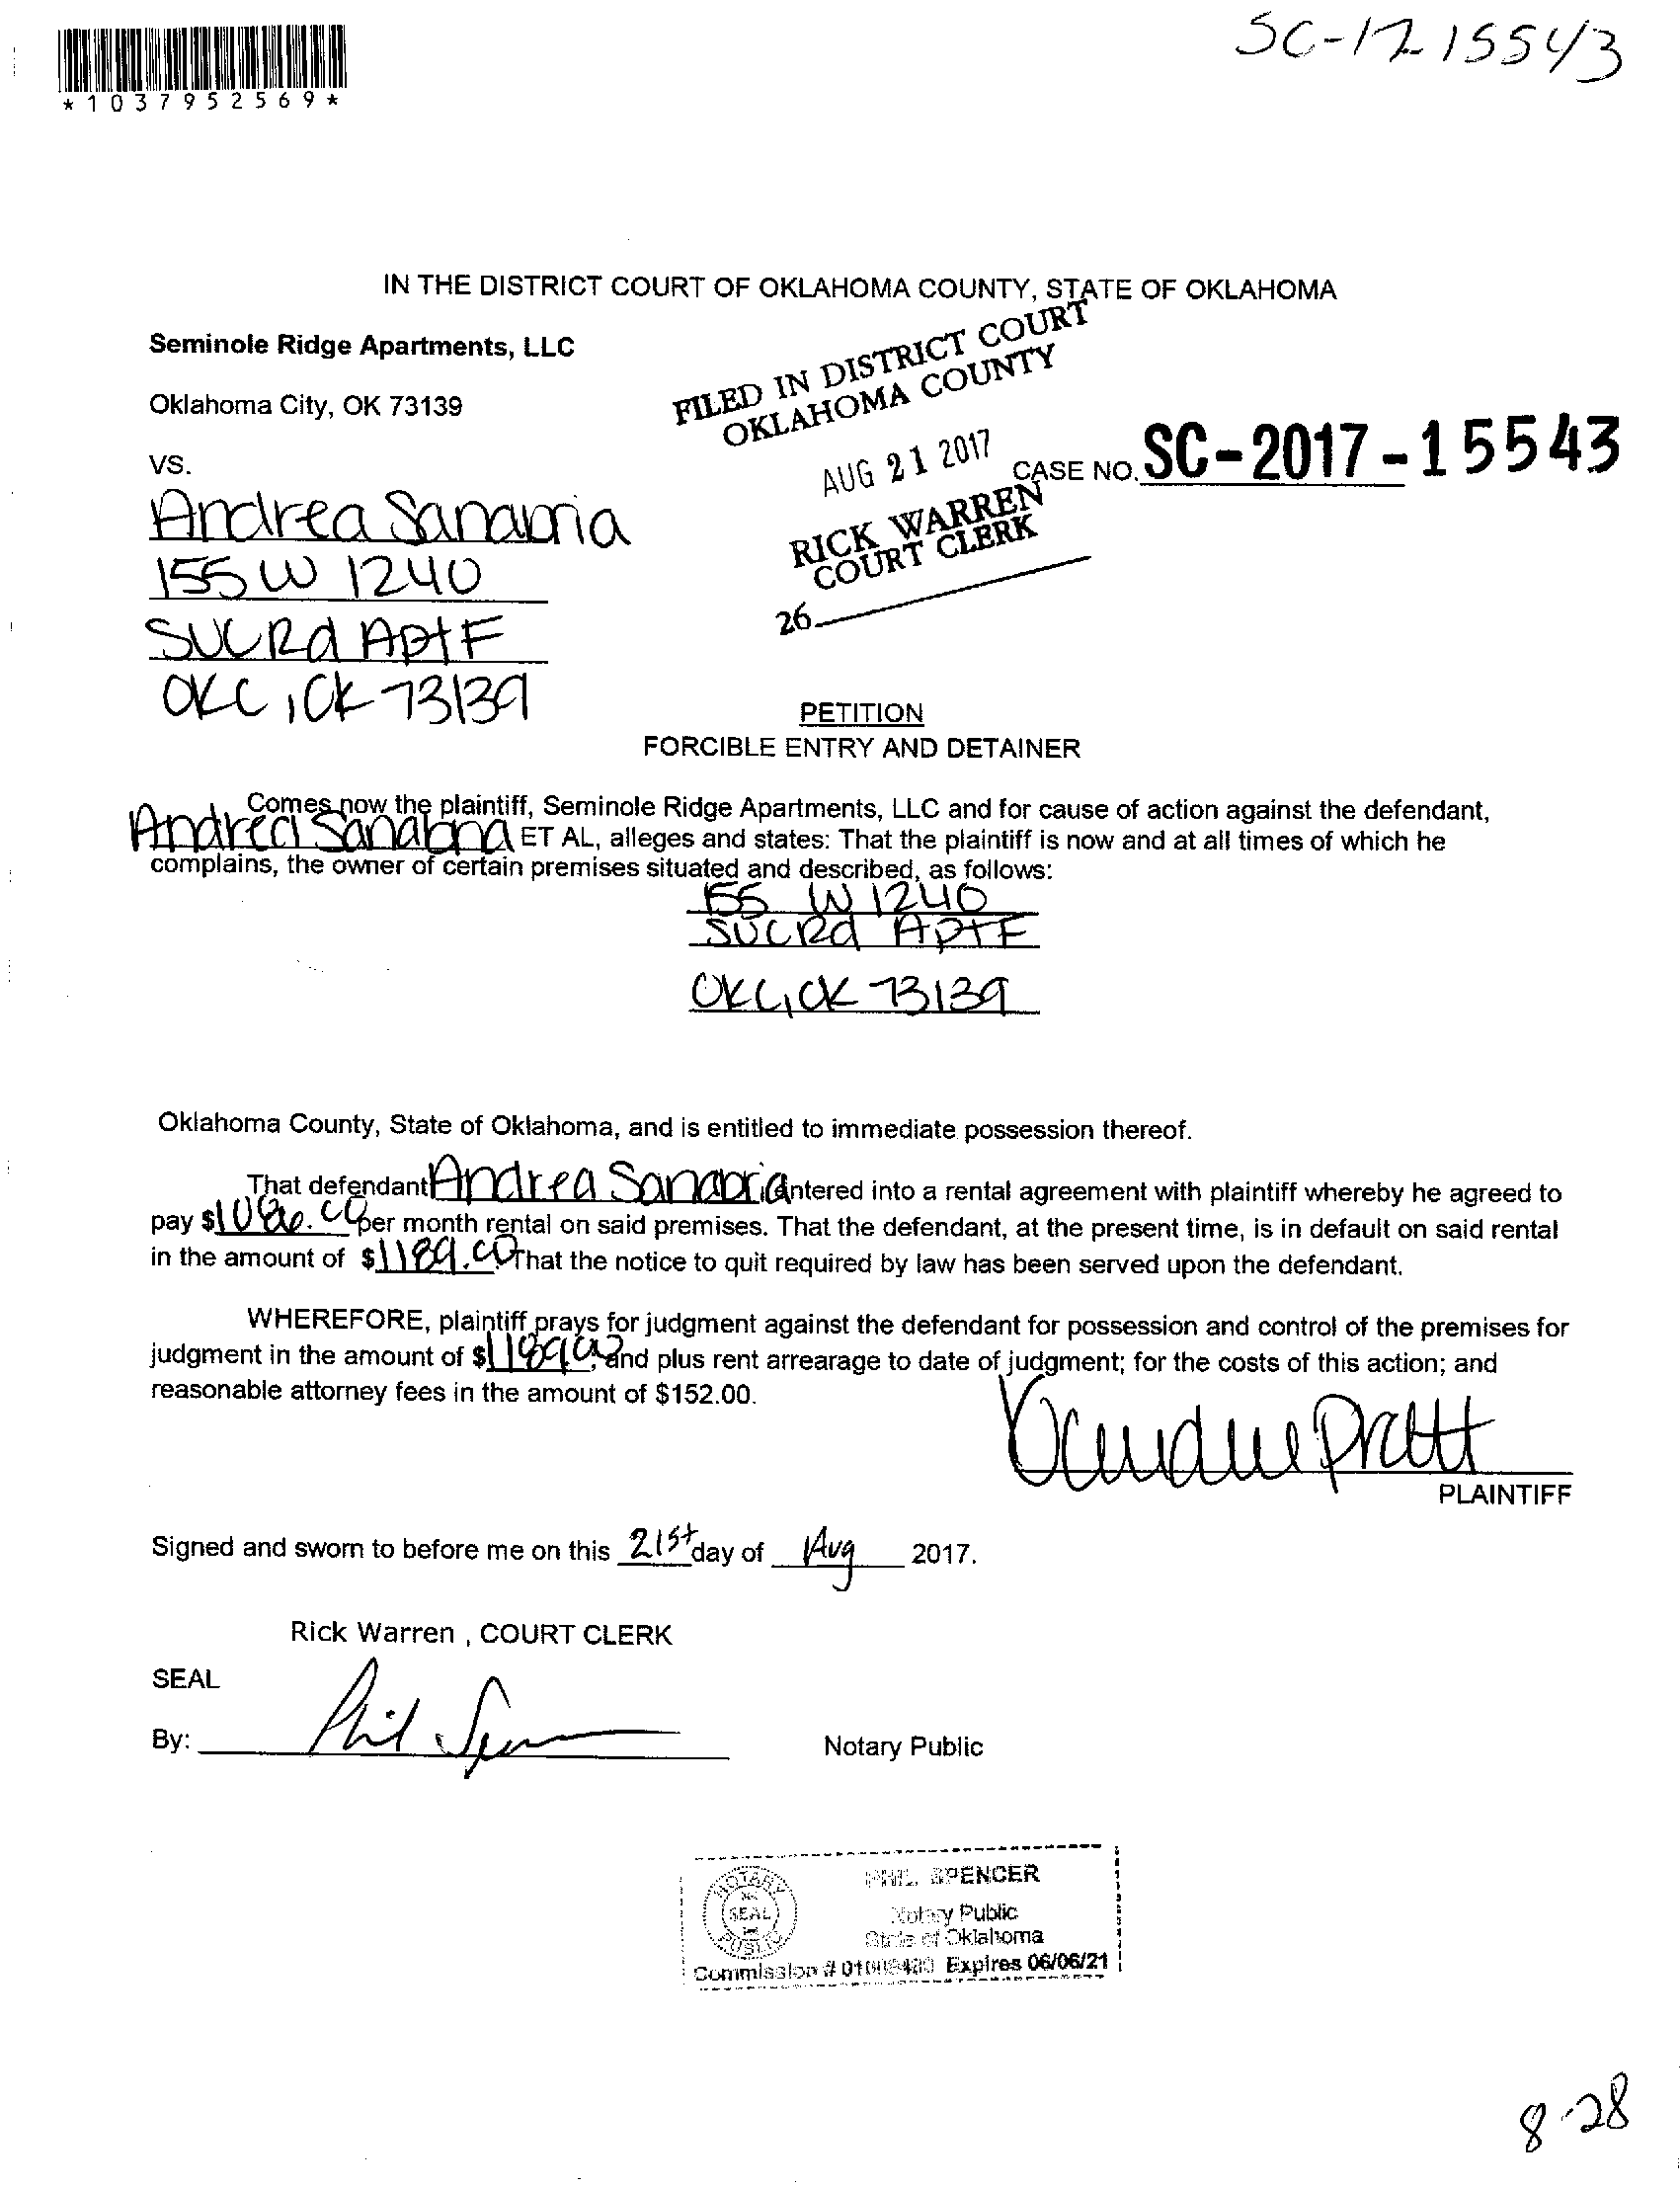 SC-17 15543
*1037952569*
IN THE DISTRICT COURT OF OKLAHOMA COUNTY, STATE OF OKLAHOMA
Seminole Ridge Apartments, LLC
Oklahoma City, OK 73139
VS.
FILED IN DISTRICT COURT
OKLAHOMA COUNTY
AUG 21 2017
RICK WARREN
COURT CLERK
26
CASE NO. SC-2017-15543
Andrea Sanabria
155 W 1240
SUCRd Apt F
OKC, OK 73139
PETITION
FORCIBLE ENTRY AND DETAINER
Comes now the plaintiff, Seminole Ridge Apartments, LLC and for cause of action against the defendant,
Andrea Sanabria ET AL, alleges and states: That the plaintiff is now and at all times of which he
complains, the owner of certain premises situated and described, as follows:
155 W 1240
SUCRd Apt F
OKC, OK 73139
Oklahoma County, State of Oklahoma, and is entitled to immediate possession thereof.
That defendant Andrea Sanabria entered into a rental agreement with plaintiff whereby he agreed to
pay $ per month rental on said premises. That the defendant, at the present time, is in default on said rental
in the amount of $1189.00 That the notice to quit required by law has been served upon the defendant.
WHEREFORE, plaintiff prays for judgment against the defendant for possession and control of the premises for
judgment in the amount of $1189.00, and plus rent arrearage to date of judgment; for the costs of this action; and
reasonable attorney fees in the amount of $152.00.
Pratt
PLAINTIFF
Signed and sworn to before me on this 21st day of Aug 2017.
Rick Warren , COURT CLERK
SEAL
By: Phil Spencer
Notary Public
NOTARY PUBLIC
SEAL
PHIL SPENCER
Notary Public
State of Oklahoma
Commission # Expires 06/06/21
8-28